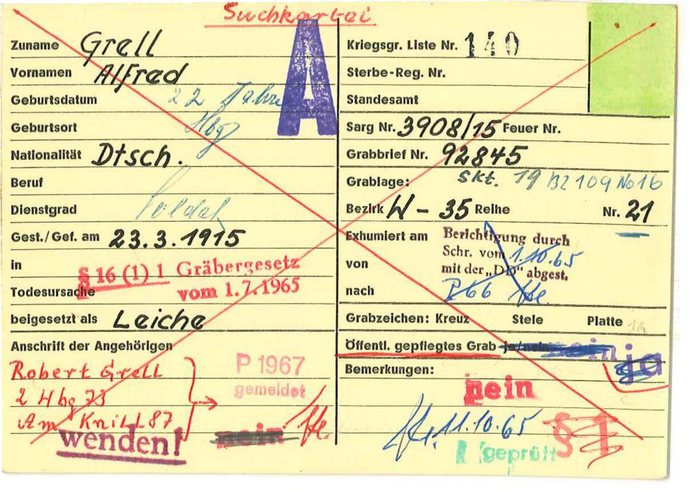 Suchkartei
Zuname Grell
Vornamen Alfred
Geburtsdatum 22 Jahre
Geburtsort Hbg
Nationalität Dtsch.
Beruf
Dienstgrad Soldat
Gest./Gef. am 23.3.1915
in
§ 16 (1) 1 Gräbergesetz
Todesursache vom 1.7.1965
beigesetzt als Leiche
Anschrift der Angehörigen
Robert Grell
2 Hbg 73
Am Knill 87
wenden!
P 1967
gemeldet
nein
A
Kriegsgr. Liste Nr. 140
Sterbe-Reg. Nr.
Standesamt
Sarg Nr. 3908/15 Feuer Nr.
Grabbrief Nr. 92845
Grablage: Skt. 19 BZ 109 No 16
Bezirk W - 35 Reihe Nr. 21
Exhumiert am Berichtigung durch
Schr. vom 1.10.65
von mit der „DD" abgest.
nach
Grabzeichen: Kreuz Stele Platte
Öffentl. gepflegtes Grab ja/nein nein ja
Bemerkungen:
nein
11.10.65
§ 1
geprüft